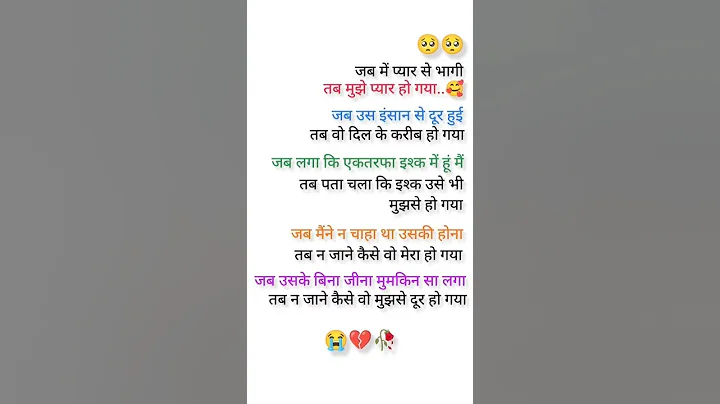 🥺🥺
जब में प्यार से भागी
तब मुझे प्यार हो गया..🥰
जब उस इंसान से दूर हुई
तब वो दिल के करीब हो गया
जब लगा कि एकतरफा इश्क में हूं मैं
तब पता चला कि इश्क उसे भी
मुझसे हो गया
जब मैंने न चाहा था उसकी होना
तब न जाने कैसे वो मेरा हो गया
जब उसके बिना जीना मुमकिन सा लगा
तब न जाने कैसे वो मुझसे दूर हो गया
😭💔🥀